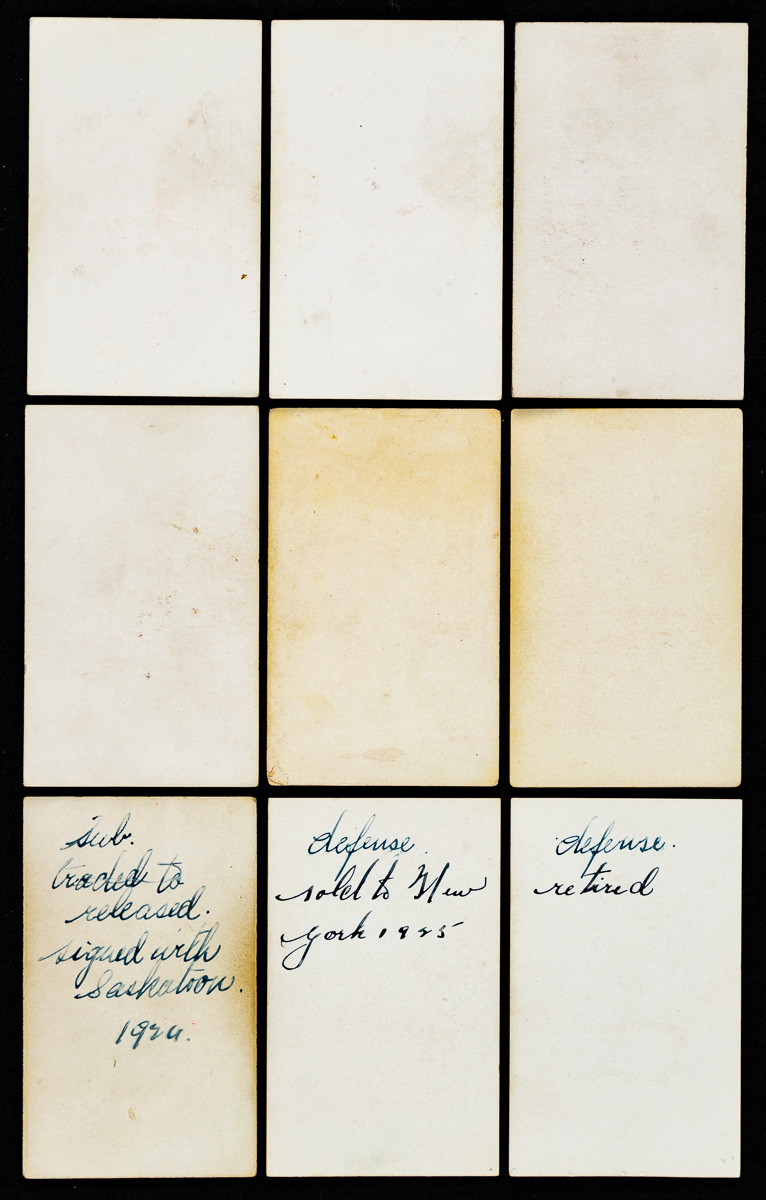 sub.
traded to
released.
signed with
Saskatoon.
1924.
defense.
sold to New
York 1925
defense.
retired